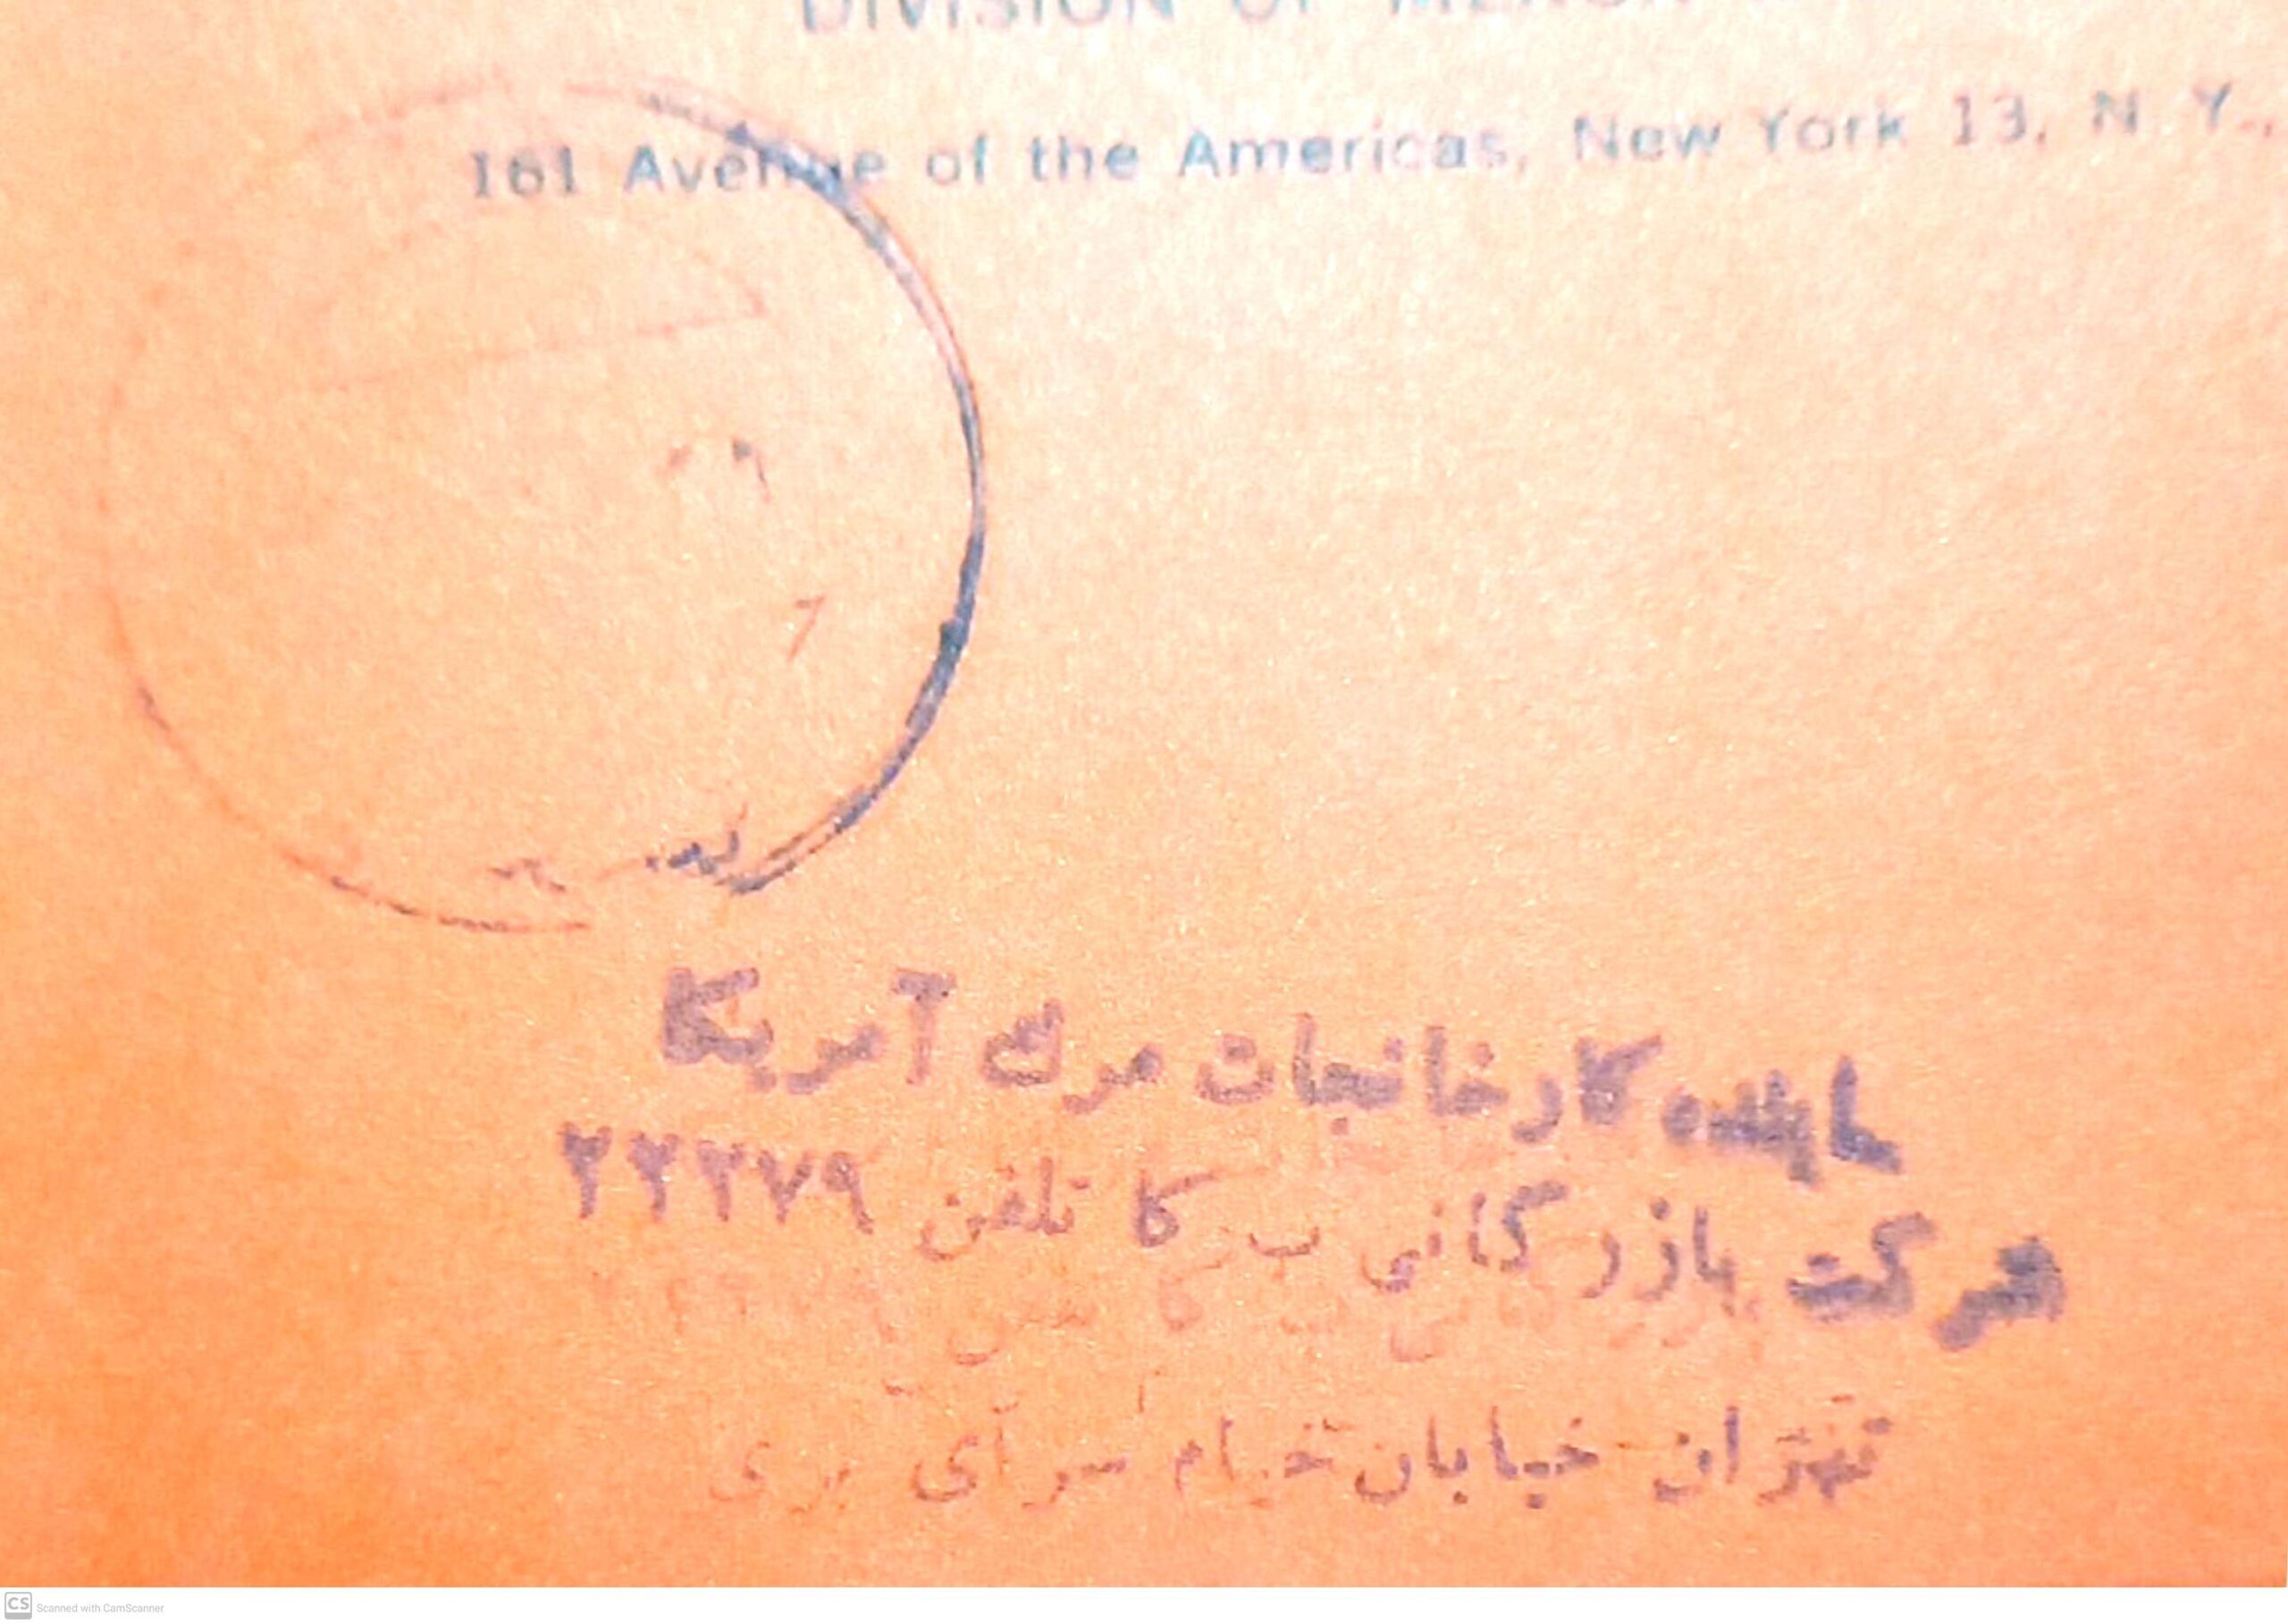 DIVISION OF
161 Avenue of the Americas, New York 13, N. Y.,
نماینده کارخانجات مرك آمریکا
شرکت بازرگانی ب کا تلفن ۲۲۲۷۹
تهران خیابان خیام سرای
Scanned with CamScanner